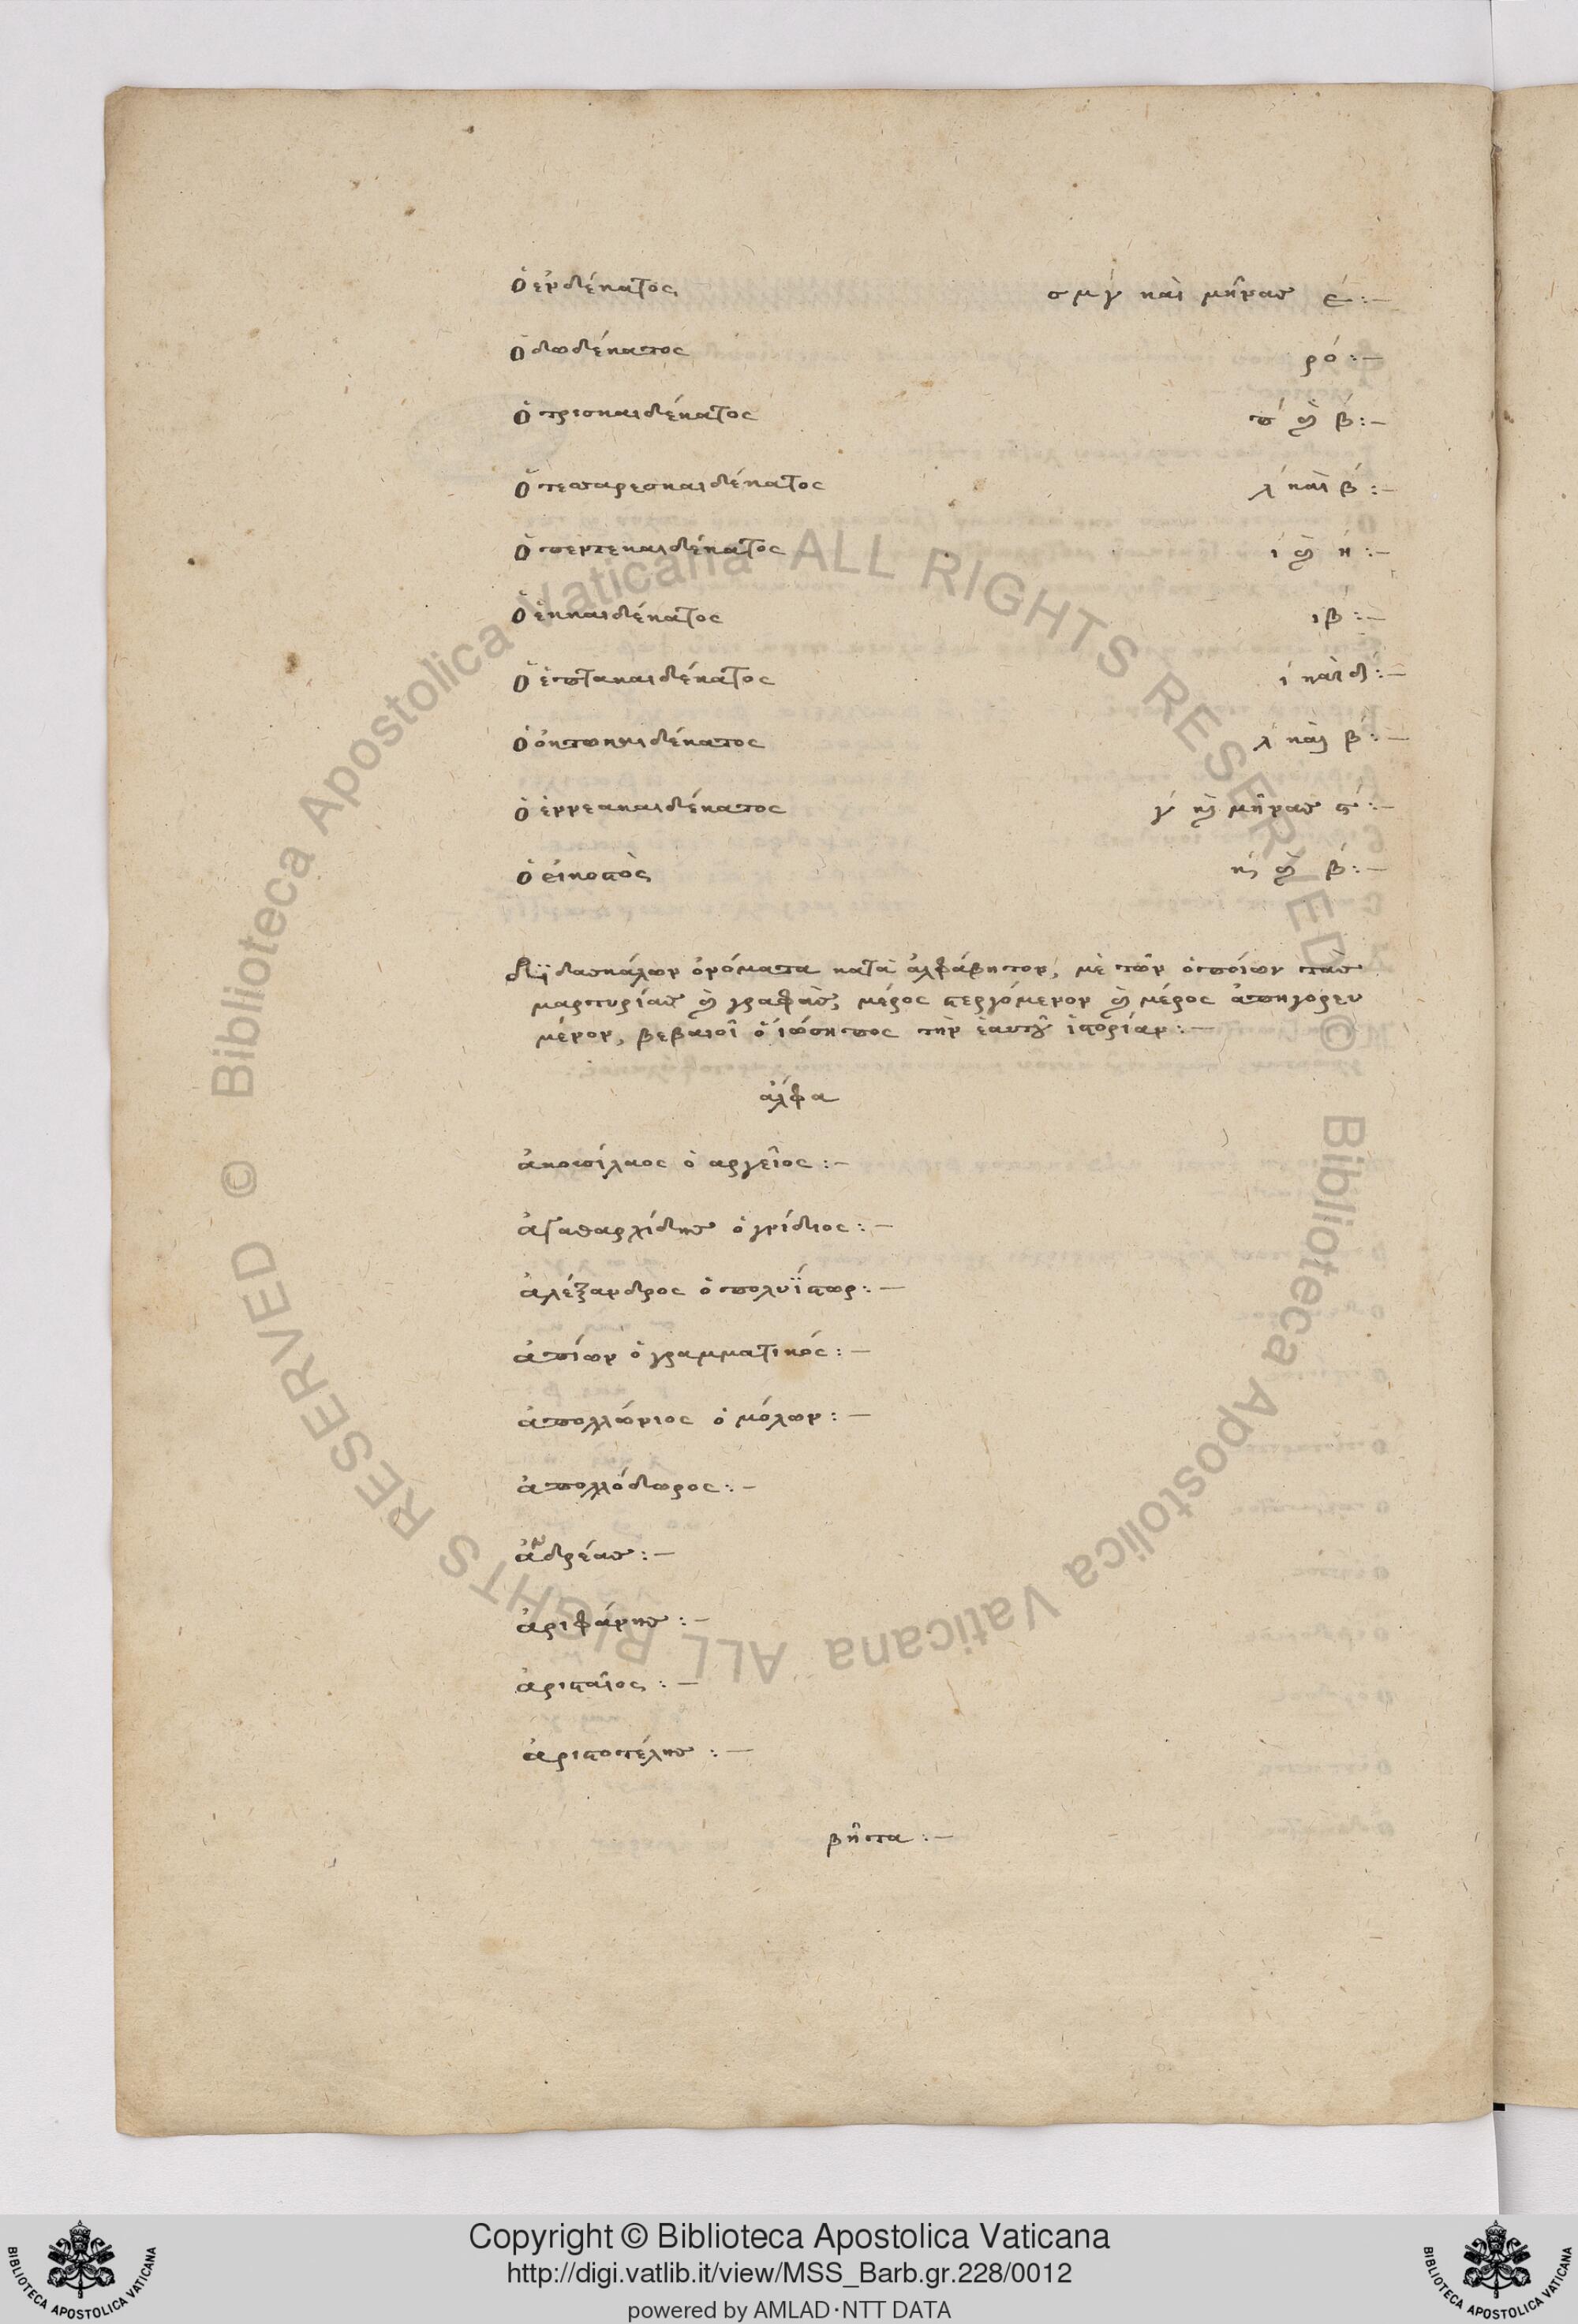 ὁ ἑνδέκατος σμγ καὶ μῆνας ε:—
ὁ δωδέκατος ρό:—
ὁ τρισκαιδέκατος π καὶ β:—
ὁ τεσσαρεσκαιδέκατος λ καὶ β:—
ὁ πεντεκαιδέκατος ι καὶ η:—
ὁ ἑκκαιδέκατος ιβ:—
ὁ ἑπτακαιδέκατος ι καὶ δ:—
ὁ ὀκτωκαιδέκατος λ καὶ β:—
ὁ ἐννεακαιδέκατος γ καὶ μῆνας ϛ:—
ὁ εἰκοστὸς κ καὶ β:—
Διδασκάλων ὀνόματα κατὰ ἀλφάβητον, μὲ τῶν ὁποίων τὰς
μαρτυρίας καὶ γραφὰς, μέρος στεργόμενον καὶ μέρος ἀπηγορευ
μένον, βεβαιοῖ ὁ ἰώσηπος τὴν ἑαυτοῦ ἱστορίαν:—
ἄλφα
ἀκουσίλαος ὁ αργεῖος:—
ἀγαθαρχίδης ὁ γνίδιος:—
ἀλέξανδρος ὁ πολυΐστωρ:—
ἀπίων ὁ γραμματικός:—
ἀπολλώνιος ὁ μόλων:—
ἀπολλόδωρος:—
ἀνδρέας:—
ἀριφάνης:—
ἀρισταῖος:—
ἀριστοτέλης:—
βῆτα:—
Copyright © Biblioteca Apostolica Vaticana
http://digi.vatlib.it/view/MSS_Barb.gr.228/0012
powered by AMLAD·NTT DATA
BIBLIOTECA APOSTOLICA VATICANA
BIBLIOTECA APOSTOLICA VATICANA
© Biblioteca Apostolica Vaticana ALL RIGHTS RESERVED
© Biblioteca Apostolica Vaticana ALL RIGHTS RESERVED